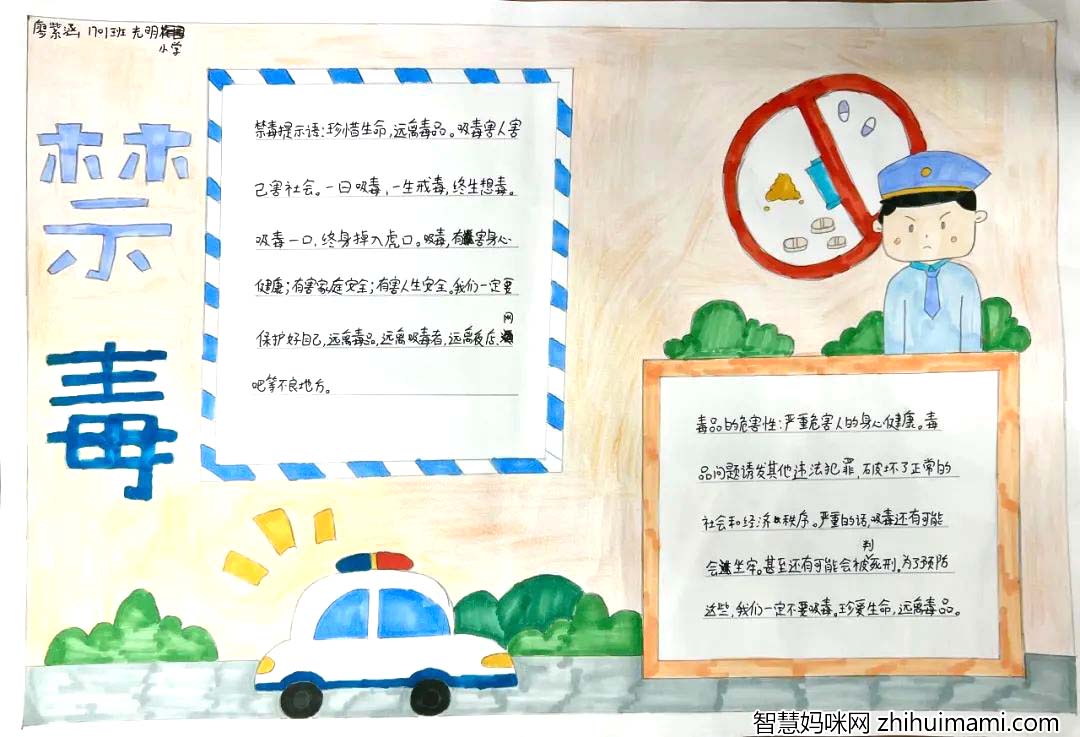 廖紫涵 1701班 光明
小学
禁
毒
禁毒提示语:珍惜生命,远离毒品。吸毒害人害
己害社会。一日吸毒,一生戒毒,终生想毒。
吸毒一口,终身掉入虎口。吸毒,有害身心
健康;有害家庭安全;有害人生安全。我们一定要
保护好自己,远离毒品,远离吸毒者,远离夜店、网
吧等不良地方。
毒品的危害性:严重危害人的身心健康。毒
品问题诱发其他违法犯罪,破坏了正常的
社会和经济秩序。严重的话,吸毒还有可能
会坐牢。甚至还有可能会被判死刑。为了预防
这些,我们一定不要吸毒。珍爱生命,远离毒品。
智慧妈咪网 zhihuimami.com